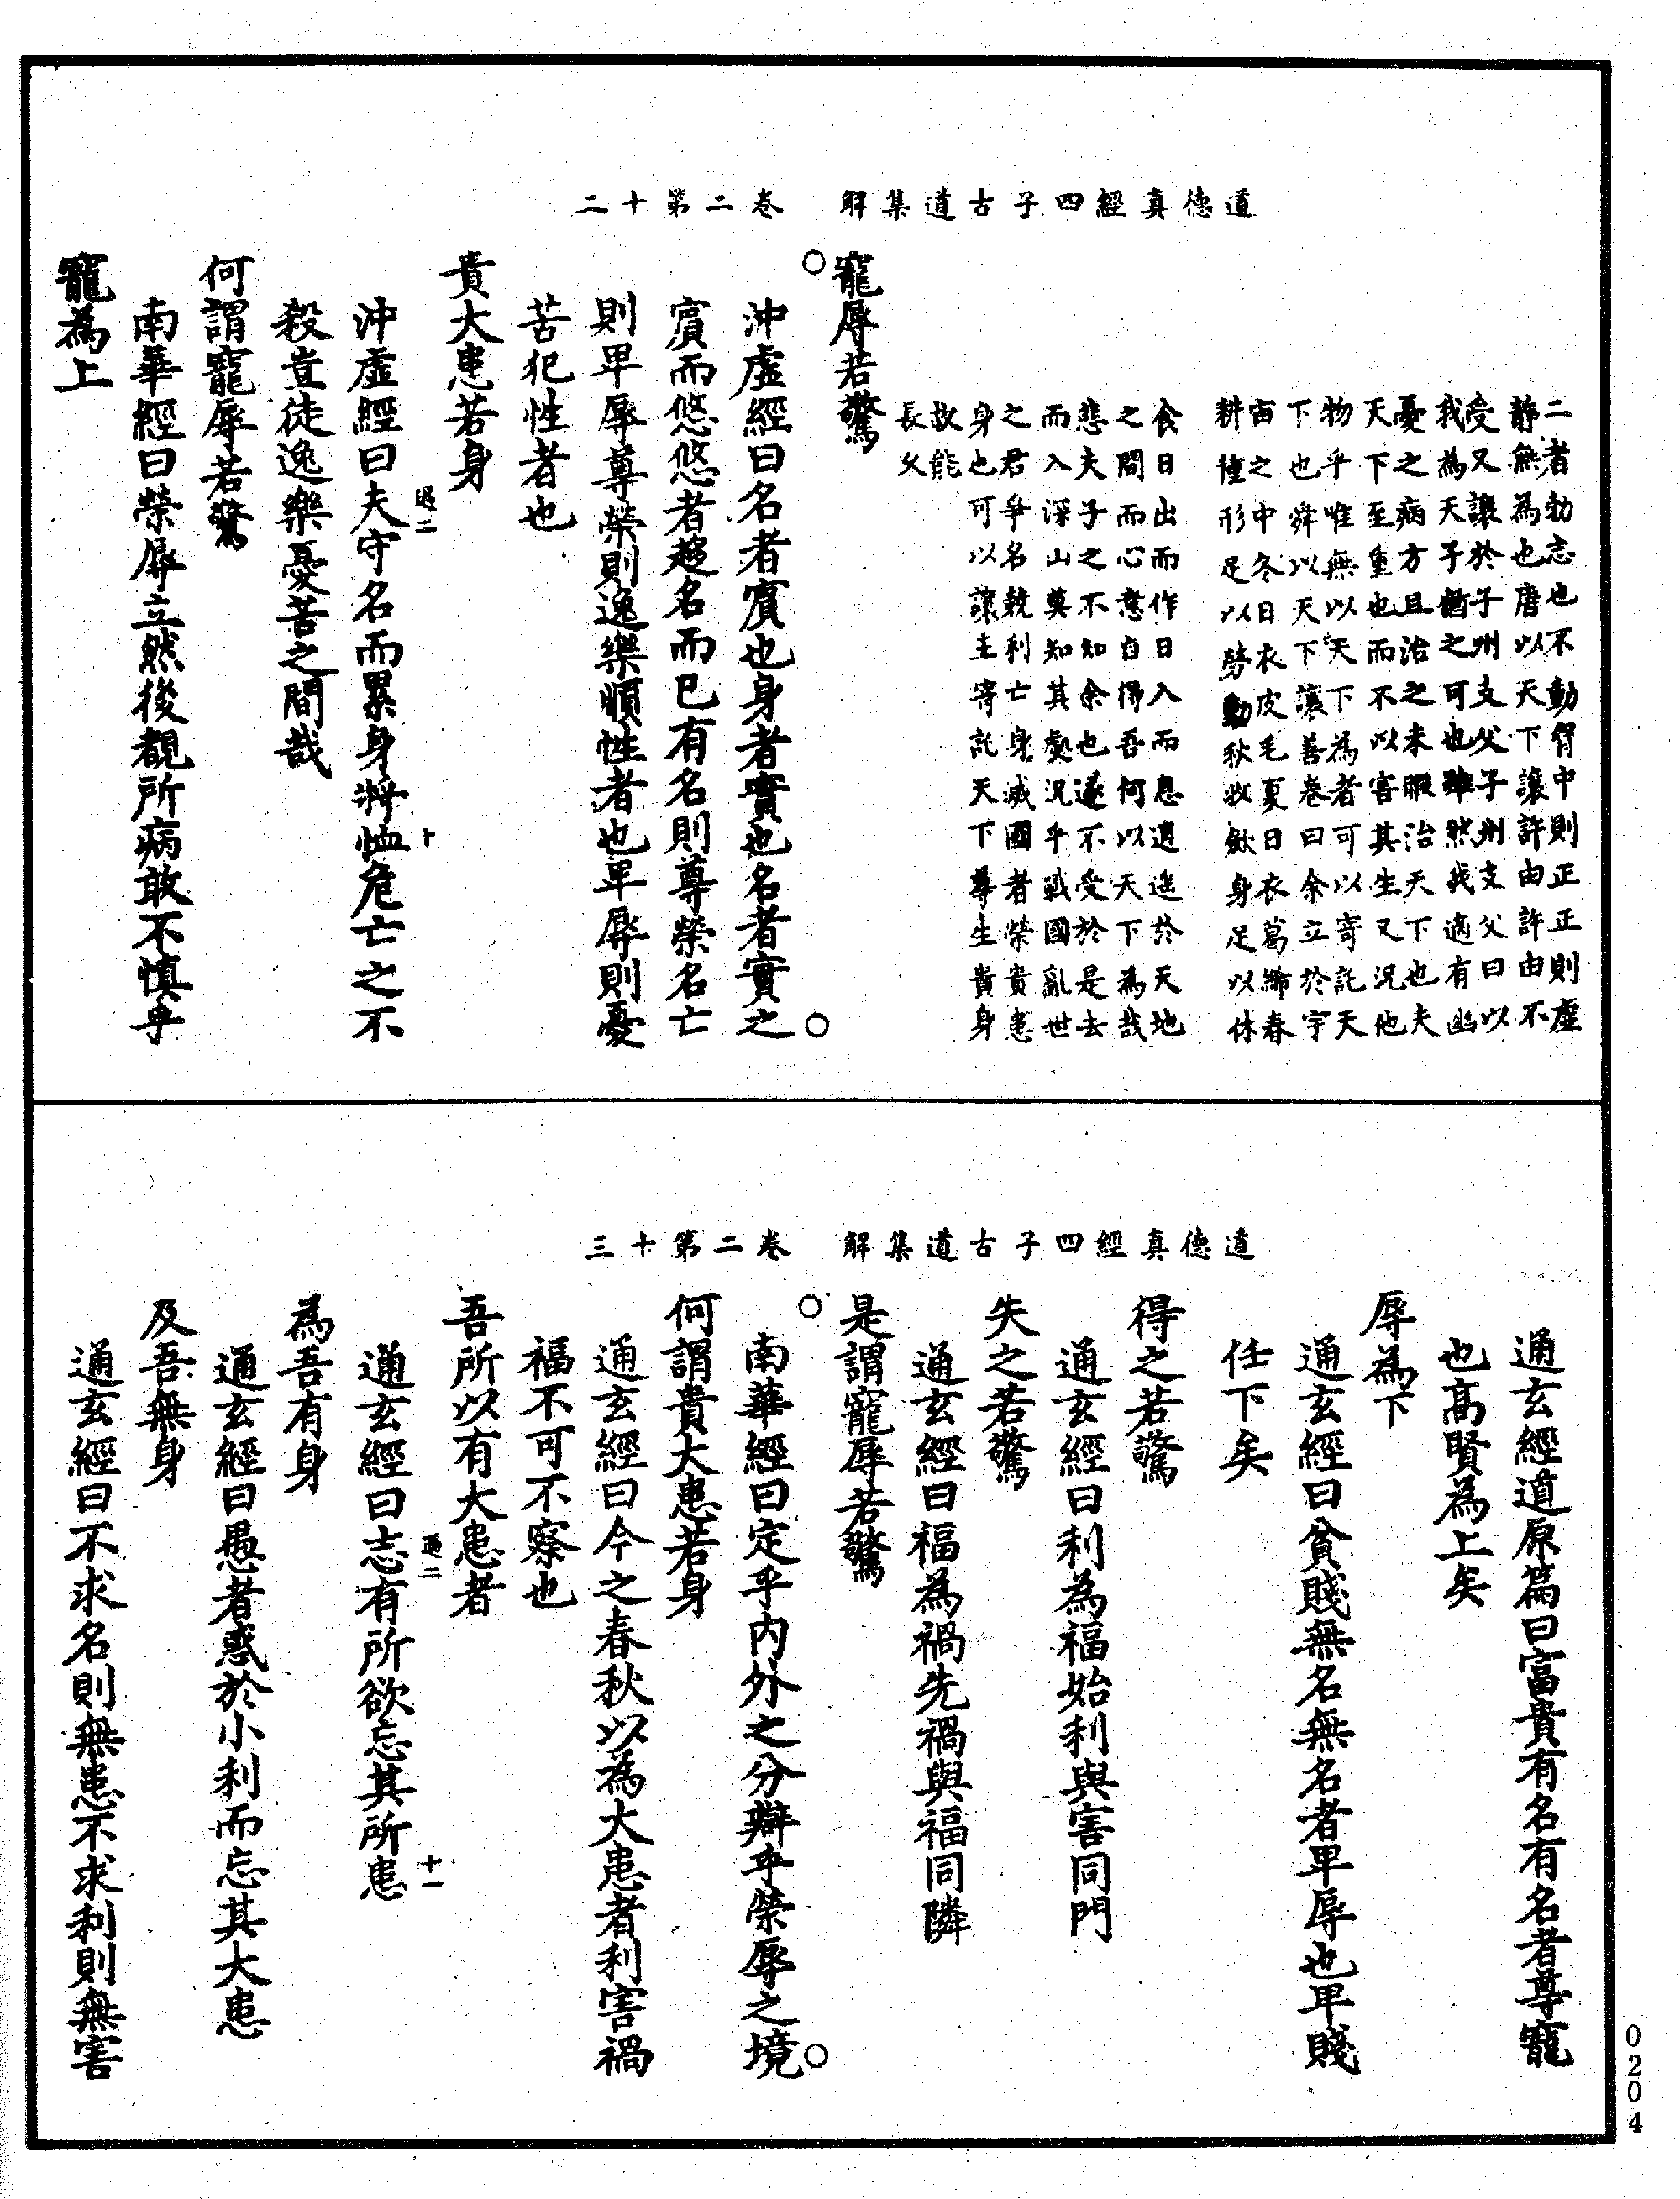 道德真經四子古道集解　卷二第十二
二者勃志也不動胷中則正正則虛
靜無為也唐以天下讓許由許由不
受又讓於子州支父子州支父曰以
我為天子猶之可也雖然我適有幽
憂之病方且治之未暇治天下也夫
天下至重也而不以害其生又況他
物乎唯無以天下為者可以寄託天
下也舜以天下讓善卷曰余立於宇
宙之中冬日衣皮毛夏日衣葛絺春
耕種形足以勞動秋收斂身足以休
食日出而作日入而息逍遙於天地
之間而心意自得吾何以天下為哉
悲夫子之不知余也遂不受於是去
而入深山莫知其處況乎戰國亂世
之君爭名競利亡身滅國者榮貴患
身也可以讓王寄託天下尊生貴身
故能
長久
寵辱若驚
○沖虛經曰名者賓也身者實也名者實之○
賓而悠悠者趍名而已有名則尊榮名亡
則卑辱尊榮則逸樂順性者也卑辱則憂
苦犯性者也
貴大患若身
沖虛經曰夫守名而累身將恤危亡之不
殺豈徒逸樂憂苦之間哉
何謂寵辱若驚
南華經曰榮辱立然後覩所病敢不慎乎
寵為上
道德真經四子古道集解　卷二第十三
通玄經道原篇曰富貴有名有名者尊寵
也高賢為上矣
辱為下
通玄經曰貧賤無名無名者卑辱也卑賤
任下矣
得之若驚
通玄經曰利為福始利與害同門
失之若驚
通玄經曰福為禍先禍與福同隣
是謂寵辱若驚
○南華經曰定乎內外之分辯乎榮辱之境○
何謂貴大患若身
通玄經曰今之春秋以為大患者利害禍
福不可不察也
吾所以有大患者
通玄經曰志有所欲忘其所患
為吾有身
通玄經曰愚者惑於小利而忘其大患
及吾無身
通玄經曰不求名則無患不求利則無害
0204